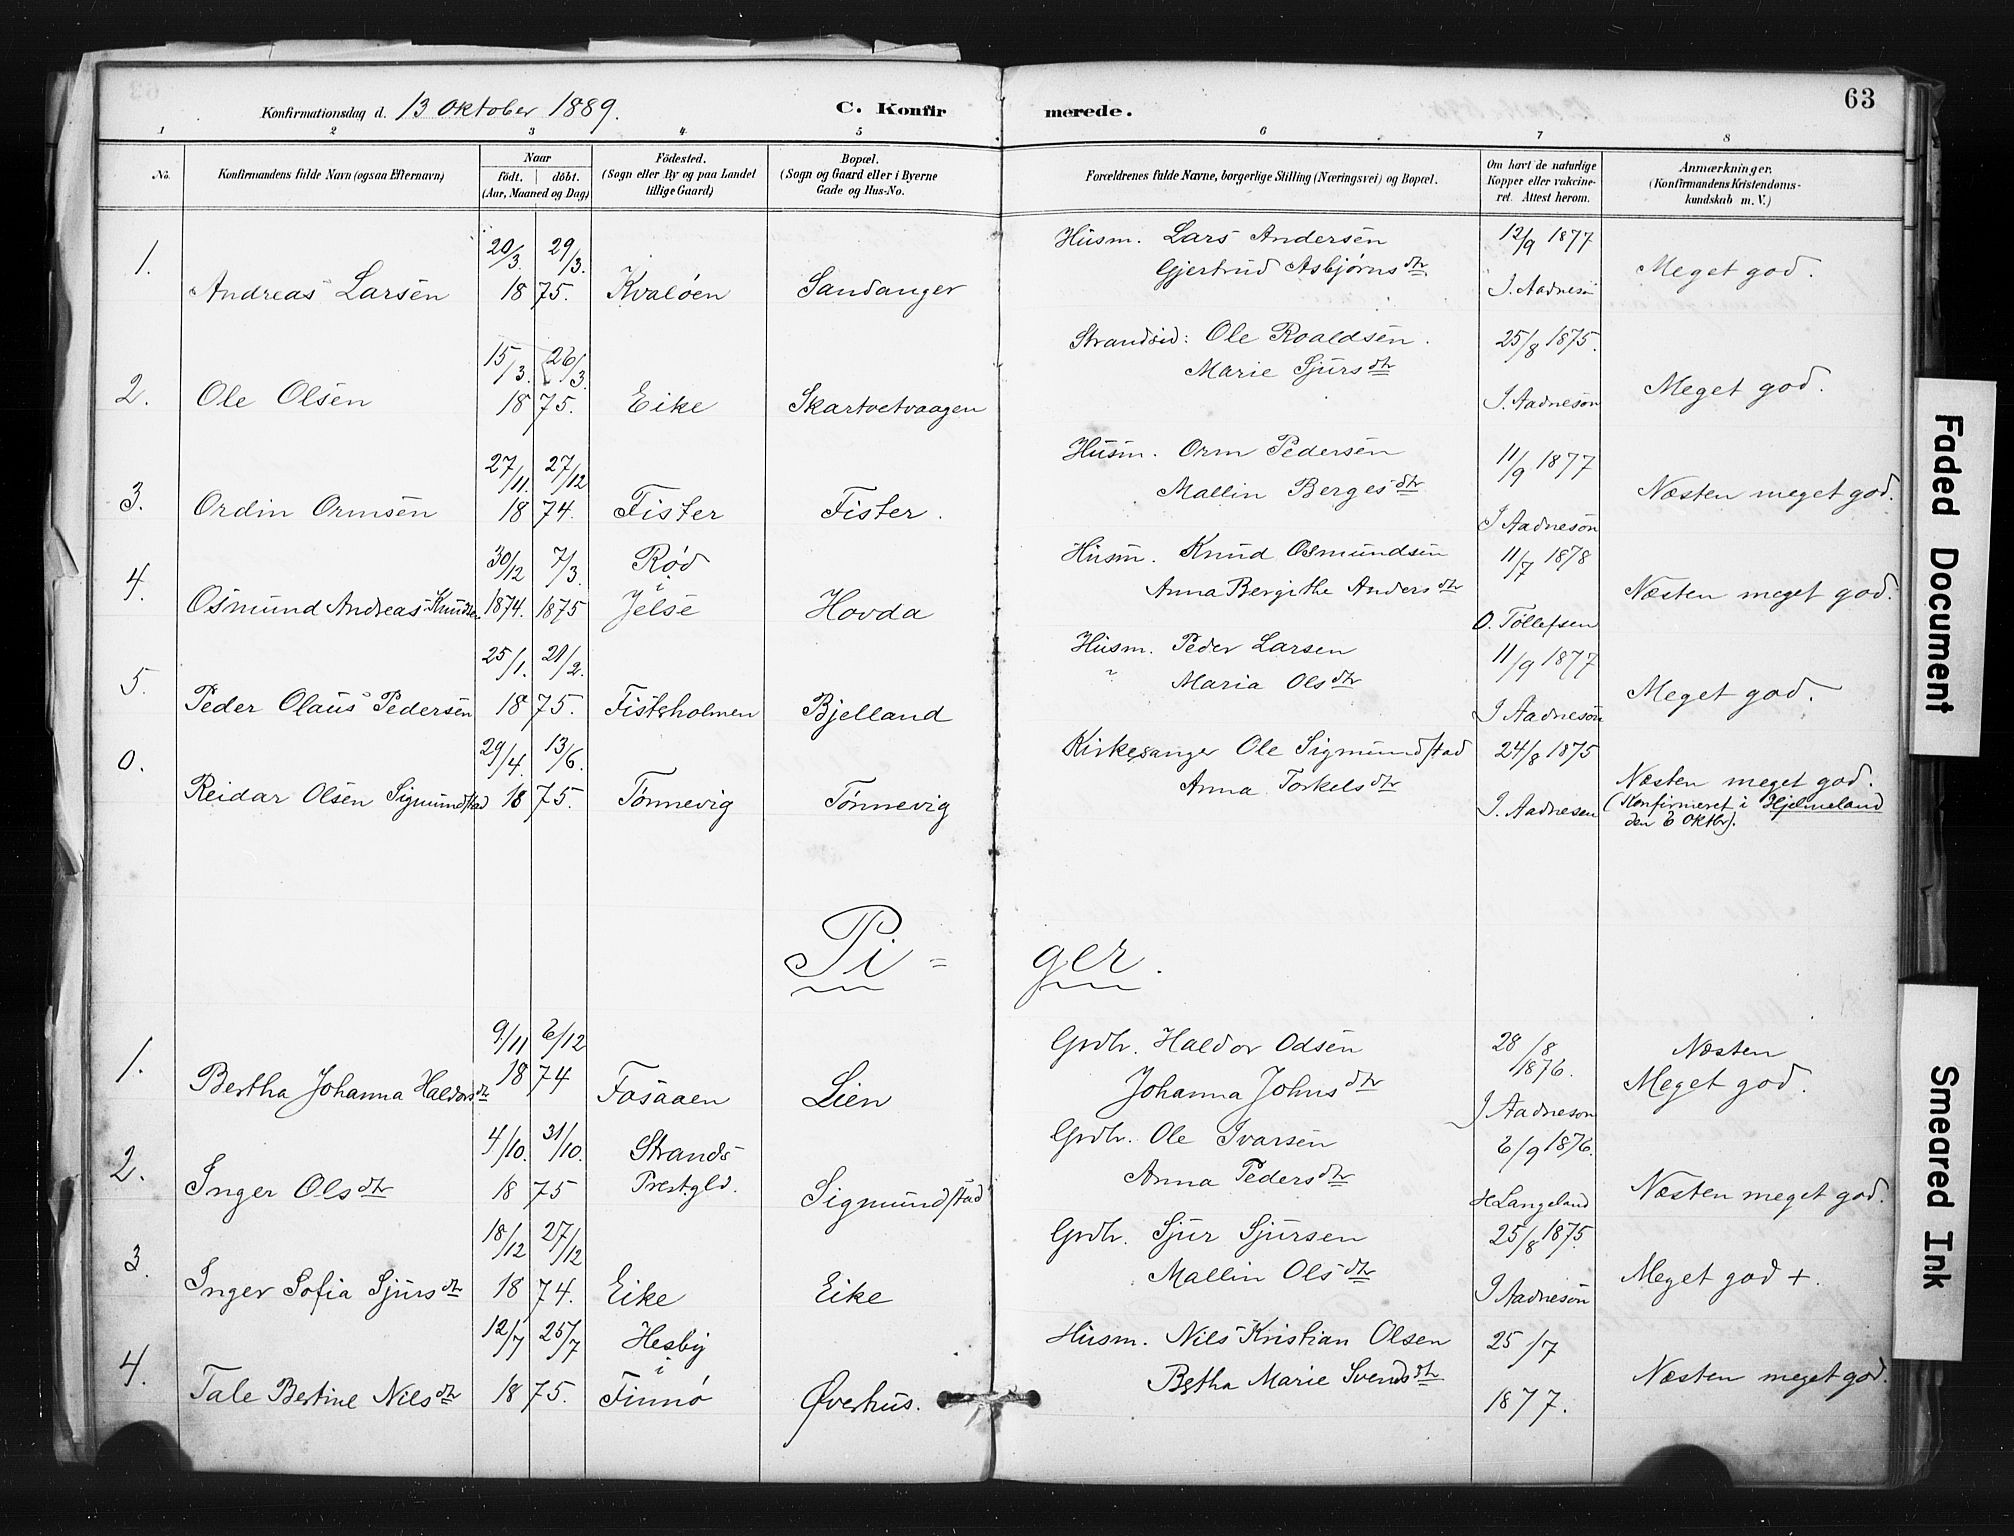 63
Konfirmationsdag d. 13 Oktober 1889. C. Konfirmerede.
1 2 3 4 5 6 7 8
No. Konfirmandens fulde Navn (ogsaa Efternavn) Naar födt. döbt. (Aar, Maaned og Dag) Födested. (Sogn eller By og paa Landet tillige Gaard) Bopæl. (Sogn og Gaard eller i Byerne Gade og Hus-No. Forældrenes fulde Navne, borgerlige Stilling (Næringsvei) og Bopæl. Om havt de naturlige Kopper eller vakcineret. Attest herom. Anmærkninger. (Konfirmandens Kristendomskundskab m. V.)
1. Andreas Larsen 20/3. 29/3. 1875. Kvaløen Sandanger Husm. Lars Andersen Gjertrud Asbjørnsdtr. 12/9 1877 J. Aadneson Meget god.
2. Ole Olsen 15/3. 26/3. 1875. Eike Skartvetvaagen Strandsid: Ole Roaldsen. Marie Sjursdtr 25/8 1875. J. Aadneson Meget god.
3. Ordin Ormsen 27/11. 27/12 1874. Fister Fister. Husm. Orm Pedersen Mallin Bergesdtr 11/9 1877 J Aadneson Næsten meget god.
4. Osmund Andreas Knudsen 30/12 1874. 7/3. 1875 Rød i Jelse Hovda Husm. Knud Osmundsen Anna Bergithe Andersdtr 11/7 1878 O. Tollefsen Næsten meget god.
5. Peder Olaus Pedersen 25/1. 21/2. 1875. Fisterholmen Bjelland Husm. Peder Larsen " Maria Olsdtr 11/9 1877 J Aadneson Meget god.
0. Reidar Olsen Sigmundstad 29/4. 13/6. 1875. Tønnevig Tønnevig Kirkesanger Ole Sigmundstad Anna Torkelsdtr 24/8 1875 J. Aadnesen Næsten meget god. (Konfirmeret i Hjelmeland den 6 Oktbr).
Pi = ger.
1. Bertha Johanna Haldorsdtr 9/11 6/12 1874 Fosaaen Lien Grdbr. Haldor Odsen Johanna Johnsdtr 28/8 1876. J Aadneson Næsten Meget god.
2. Inger Olsdtr 4/10. 31/10. 1875 Strands Prestgld. Sigmundstad Grdbr. Ole Ivarsen Anna Pedersdtr 6/9 1876. H Langeland Næsten meget god.
3. Inger Sofia Sjursdtr 18/12 27/12 1874. Eike Eike Grdbr. Sjur Sjursen Mallin Olsdtr 25/8 1875. J Aadneson Meget god +.
4. Tale Bertine Nilsdtr 12/7 25/7 1875. Hesby i Finnø Øverhus. Husm. Nils Kristian Olsen Bertha Marie Svendsdtr 25/7 1877. Næsten meget god.
Faded Document
Smeared Ink